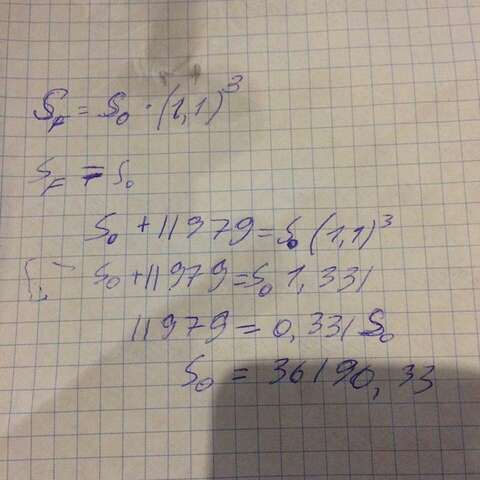 S_F = S_0 · (1,1)^3
S_F = S_0
S_0 + 11979 = S_0 (1,1)^3
S_0 + 11979 = S_0 1,331
11979 = 0,331 S_0
S_0 = 36190,33